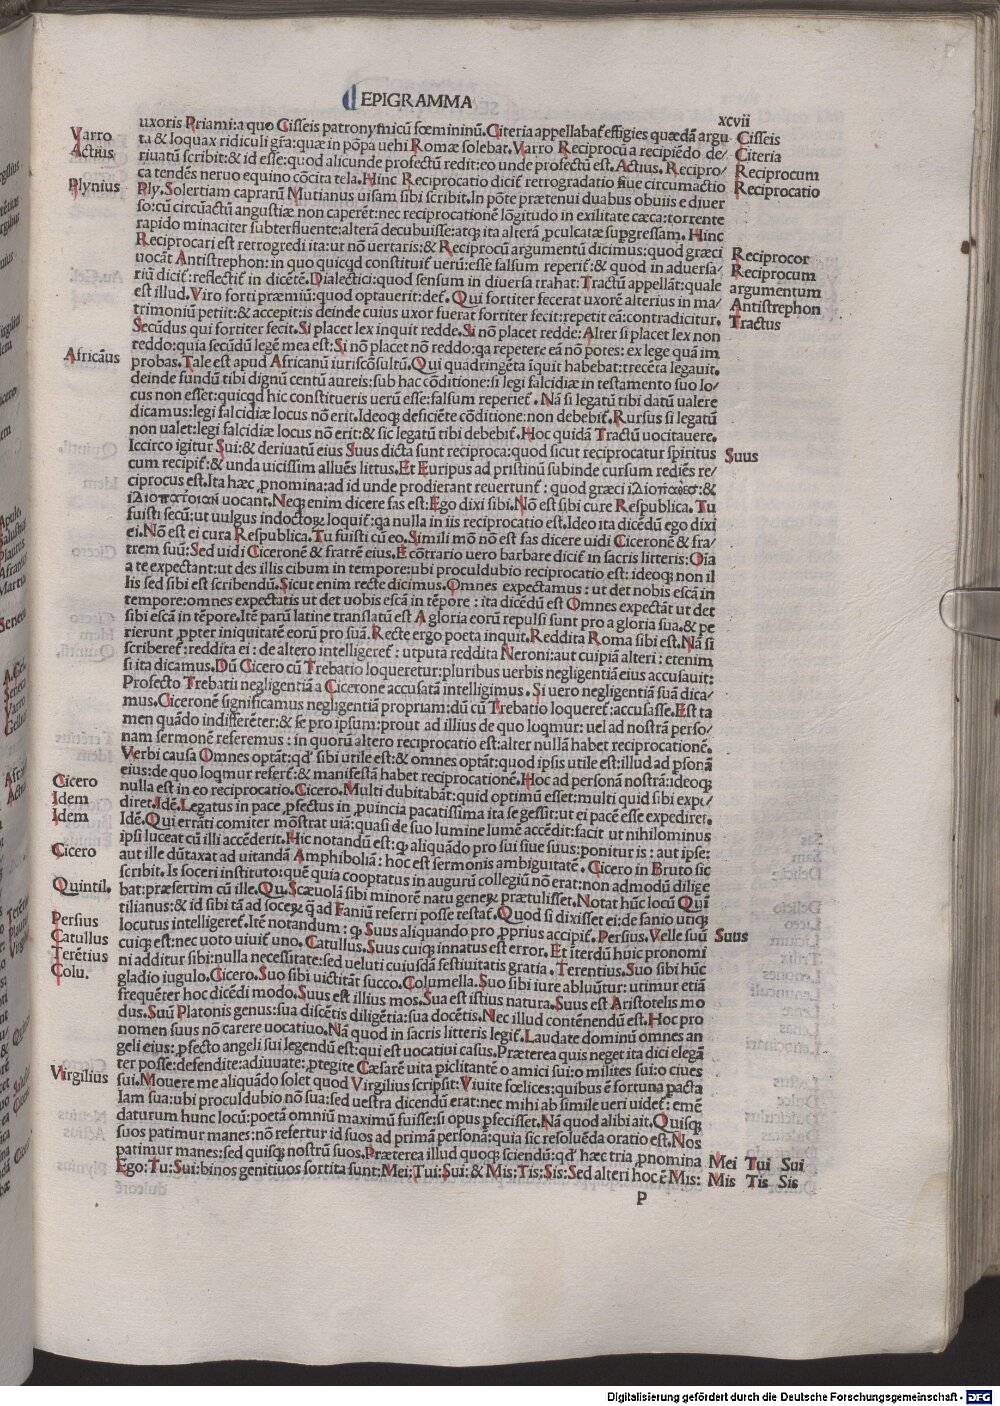 EPIGRAMMA
xcvii
uxoris Priami:a quo Cisseis patronymicū fœmininū.Citeria appellabat̄ effigies quædā argu
ta & loquax ridiculi gr̄a:quæ in pōpa uehi Romæ solebat.Varro Reciprocū a recipiēdo de/
riuatū scribit:& id esse:quod alicunde profectū redit:eo unde profectū est.Actius.Recipro/
ca tendēs neruo equino cōcita tela.Hinc Reciprocatio dicit̄ retrogradatio siue circumactio
Ply.Solertiam caprarū Mutianus uisam sibi scribit.In pōte prætenui duabus obuiis e diuer
so:cū circūactū angustiæ non caperēt:nec reciprocationē lōgitudo in exilitate cæca:torrente
rapido minaciter subterfluente:alterā decubuisse:atq; ita alterā ꝓculcatæ suꝑgressam.Hinc
Reciprocari est retrogredi ita:ut nō uertaris:& Reciprocū argumentū dicimus:quod græci
uocāt Antistrephon:in quo quicqd constituit̄ uerū:esse falsum reperit̄:& quod in aduersa/
riū dicit̄:reflectit̄ in dicētē.Dialectici:quod sensum in diuersa trahat:Tractū appellāt:quale
est illud.Viro forti præmiū:quod optauerit:det̄.Qui fortiter fecerat uxorē alterius in ma/
trimoniū petiit:& accepit:is deinde cuius uxor fuerat fortiter fecit:repetit eā:contradicitur.
Secūdus qui fortiter fecit.Si placet lex inquit redde.Si nō placet redde:Alter si placet lex non
reddo:quia secūdū legē mea est:Si nō placet nō reddo:qa repetere eā nō potes:ex lege quā im
probas.Tale est apud Africanū iuriscōsultū.Qui quadringēta īquit habebat:trecēta legauit.
deinde fundū tibi dignū centū aureis:sub hac cōditione:si legi falcidiæ in testamento suo lo/
cus non esset:quicqd hic constitueris uerū esse:falsum reperiet̄.Nā si legatū tibi datū ualere
dicamus:legi falcidiæ locus nō erit.Ideoq; deficiēte cōditione:non debebit̄.Rursus si legatū
non ualet:legi falcidiæ locus nō erit:& sic legatū tibi debebit̄.Hoc quidā Tractū uocitauere.
Iccirco igitur Sui:& deriuatū eius Suus dicta sunt reciproca:quod sicut reciprocatur spiritus
cum recipit̄:& unda uicissim alluēs littus.Et Euripus ad pristinū subinde cursum rediēs re/
ciprocus est.Ita hæc ꝓnomina:ad id unde prodierant reuertunt̄:quod græci ἰδιοπαθὲσ:&
uocant.Neq; enim dicere fas est:Ego dixi sibi.Nō est sibi cure Respublica.Tu
fuisti secū:ut uulgus indoctoꝝ loquit̄:qa nulla in iis reciprocatio est.Ideo ita dicēdū ego dixi
ei.Nō est ei cura Respublica.Tu fuisti cū eo.Simili mō nō est fas dicere uidi Ciceronē & fra/
trem suū:Sed uidi Ciceronē & fratrē eius.E cōtrario uero barbare dicit̄ in sacris litteris:Oīa
a te expectant:ut des illis cibum in tempore:ubi proculdubio reciprocatio est:ideoq; non il
lis sed sibi est scribendū.Sicut enim recte dicimus.Omnes expectamus:ut det nobis escā in
tempore:omnes expectatis ut det uobis escā in tēpore:ita dicēdū est Omnes expectāt ut det
sibi escā in tēpore.Itē parū latine translatū est A gloria eorū repulsi sunt pro a gloria sua.& pe
rierunt ꝓpter iniquitatē eorū pro suā.Recte ergo poeta inquit.Reddita Roma sibi est.Nā si
scriberet̄:reddita ei:de altero intelligeret̄:utputa reddita Neroni:aut cuipiā alteri:etenim
si ita dicamus.Dū Cicero cū Trebatio loqueretur:pluribus uerbis negligentiā eius accusauit:
Profecto Trebatii negligentiā a Cicerone accusatā intelligimus.Si uero negligentiā suā dica/
mus.Ciceronē significamus negligentiā propriam:dū cū Trebatio loqueret̄:accusasse.Est ta
men quādo indifferēter:& se pro ipsum:prout ad illius de quo loqmur:uel ad nostrā perso/
nam sermonē referemus:in quorū altero reciprocatio est:alter nullā habet reciprocationē.
Verbi causa Omnes optāt:qd sibi utile est:& omnes optāt:quod ipsis utile est:illud ad ꝑsonā
eius:de quo loqmur refert̄:& manifestā habet reciprocationē.Hoc ad personā nostrā:ideoq;
nulla est in eo reciprocatio.Cicero.Multi dubitabāt:quid optimū esset:multi quid sibi expe/
diret.Idē.Legatus in pace ꝓfectus in ꝓuincia pacatissima ita se gessit:ut ei pacē esse expediret.
Idē.Qui errāti comiter mōstrat uiā:quasi de suo lumine lumē accēdit:facit ut nihilominus
ipsi luceat cū illi accēderit.Hic notandū est:ꝙ aliquādo pro sui siue suus:ponitur is:aut ipse:
aut ille dūtaxat ad uitandā Amphiboliā:hoc est sermonis ambiguitatē.Cicero in Bruto sic
scribit.Is soceri instituto:quē quia cooptatus in augurū collegiū nō erat:non admodū dilige
bat:præsertim cū ille.Qu.Scæuolā sibi minorē natu generꝝ prætulisset.Notat hūc locū Qui
tilianus:& id sibi tā ad socerꝝ ꝙ ad Faniū referri posse testat̄.Quod si dixisset ei:de fanio utiq;
locutus intelligeret̄.Itē notandum:ꝙ Suus aliquando pro ꝓprius accipit̄.Persius.Velle suū
cuiq; est:nec uoto uiuit̄ uno.Catullus.Suus cuiq; innatus est error.Et īterdū huic pronomi
ni additur sibi:nulla necessitate:sed ueluti cuiusdā festiuitatis gratia.Terentius.Suo sibi hūc
gladio iugulo.Cicero.Suo sibi uictitāt succo.Columella.Suo sibi iure abluūtur:utimur etiā
frequēter hoc dicēdi modo.Suus est illius mos.Sua est istius natura.Suus est Aristotelis mo
dus.Suū Platonis genus:sua discētis diligētia:sua docētis.Nec illud contēnendū est.Hoc pro
nomen suus nō carere uocatiuo.Nā quod in sacris litteris legit̄.Laudate dominū omnes an
geli eius:ꝓfecto angeli sui legendū est:qui est uocatiui casus.Præterea quis neget ita dici elegā
ter posse:defendite:adiuuate:ꝓtegite Cæsarē uita piclitantē o amici sui:o milites sui:o ciues
sui.Mouere me aliquādo solet quod Virgilius scripsit:Viuite fœlices:quibus ē fortuna pacta
Iam sua:ubi proculdubio nō sua:sed uestra dicendū erat:nec mihi ab simile ueri uidet̄:emē
daturum hunc locū:poetā omniū maximū fuisse:si opus ꝑfecisset.Nā quod alibi ait.Quisq;
suos patimur manes:nō refertur id suos ad primā personā:quia sic resoluēda oratio est.Nos
patimur manes:sed quisq; nostrū suos.Præterea illud quoq; sciendū:qd hæc tria ꝓnomina
Ego:Tu:Sui:binos genitiuos sortita sunt:Mei:Tui:Sui:& Mis:Tis:Sis:Sed alteri hoc ē Mis:
P
Varro
Actius
Plynius
Africāus
Cicero
Idem
Idem
Cicero
Quintil.
Persius
Catullus
Terētius
Colu.
Virgilius
Cisseis
Citeria
Reciprocum
Reciprocatio
Reciprocor
Reciprocum
argumentum
Antistrephon
Tractus
Suus
Suus
Mei Tui Sui
Mis Tis Sis
Digitalisierung gefördert durch die Deutsche Forschungsgemeinschaft - DFG